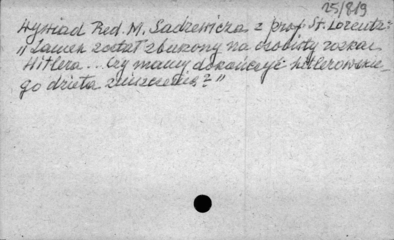 25/819
Wywiad Red. M. Sadzewicza z prof. St. Lorentz:
"Zamek został zburzony na osobisty rozkaz
Hitlera... Czy mamy dokończyć hitlerowskie-
go dzieła zniszczenia?"